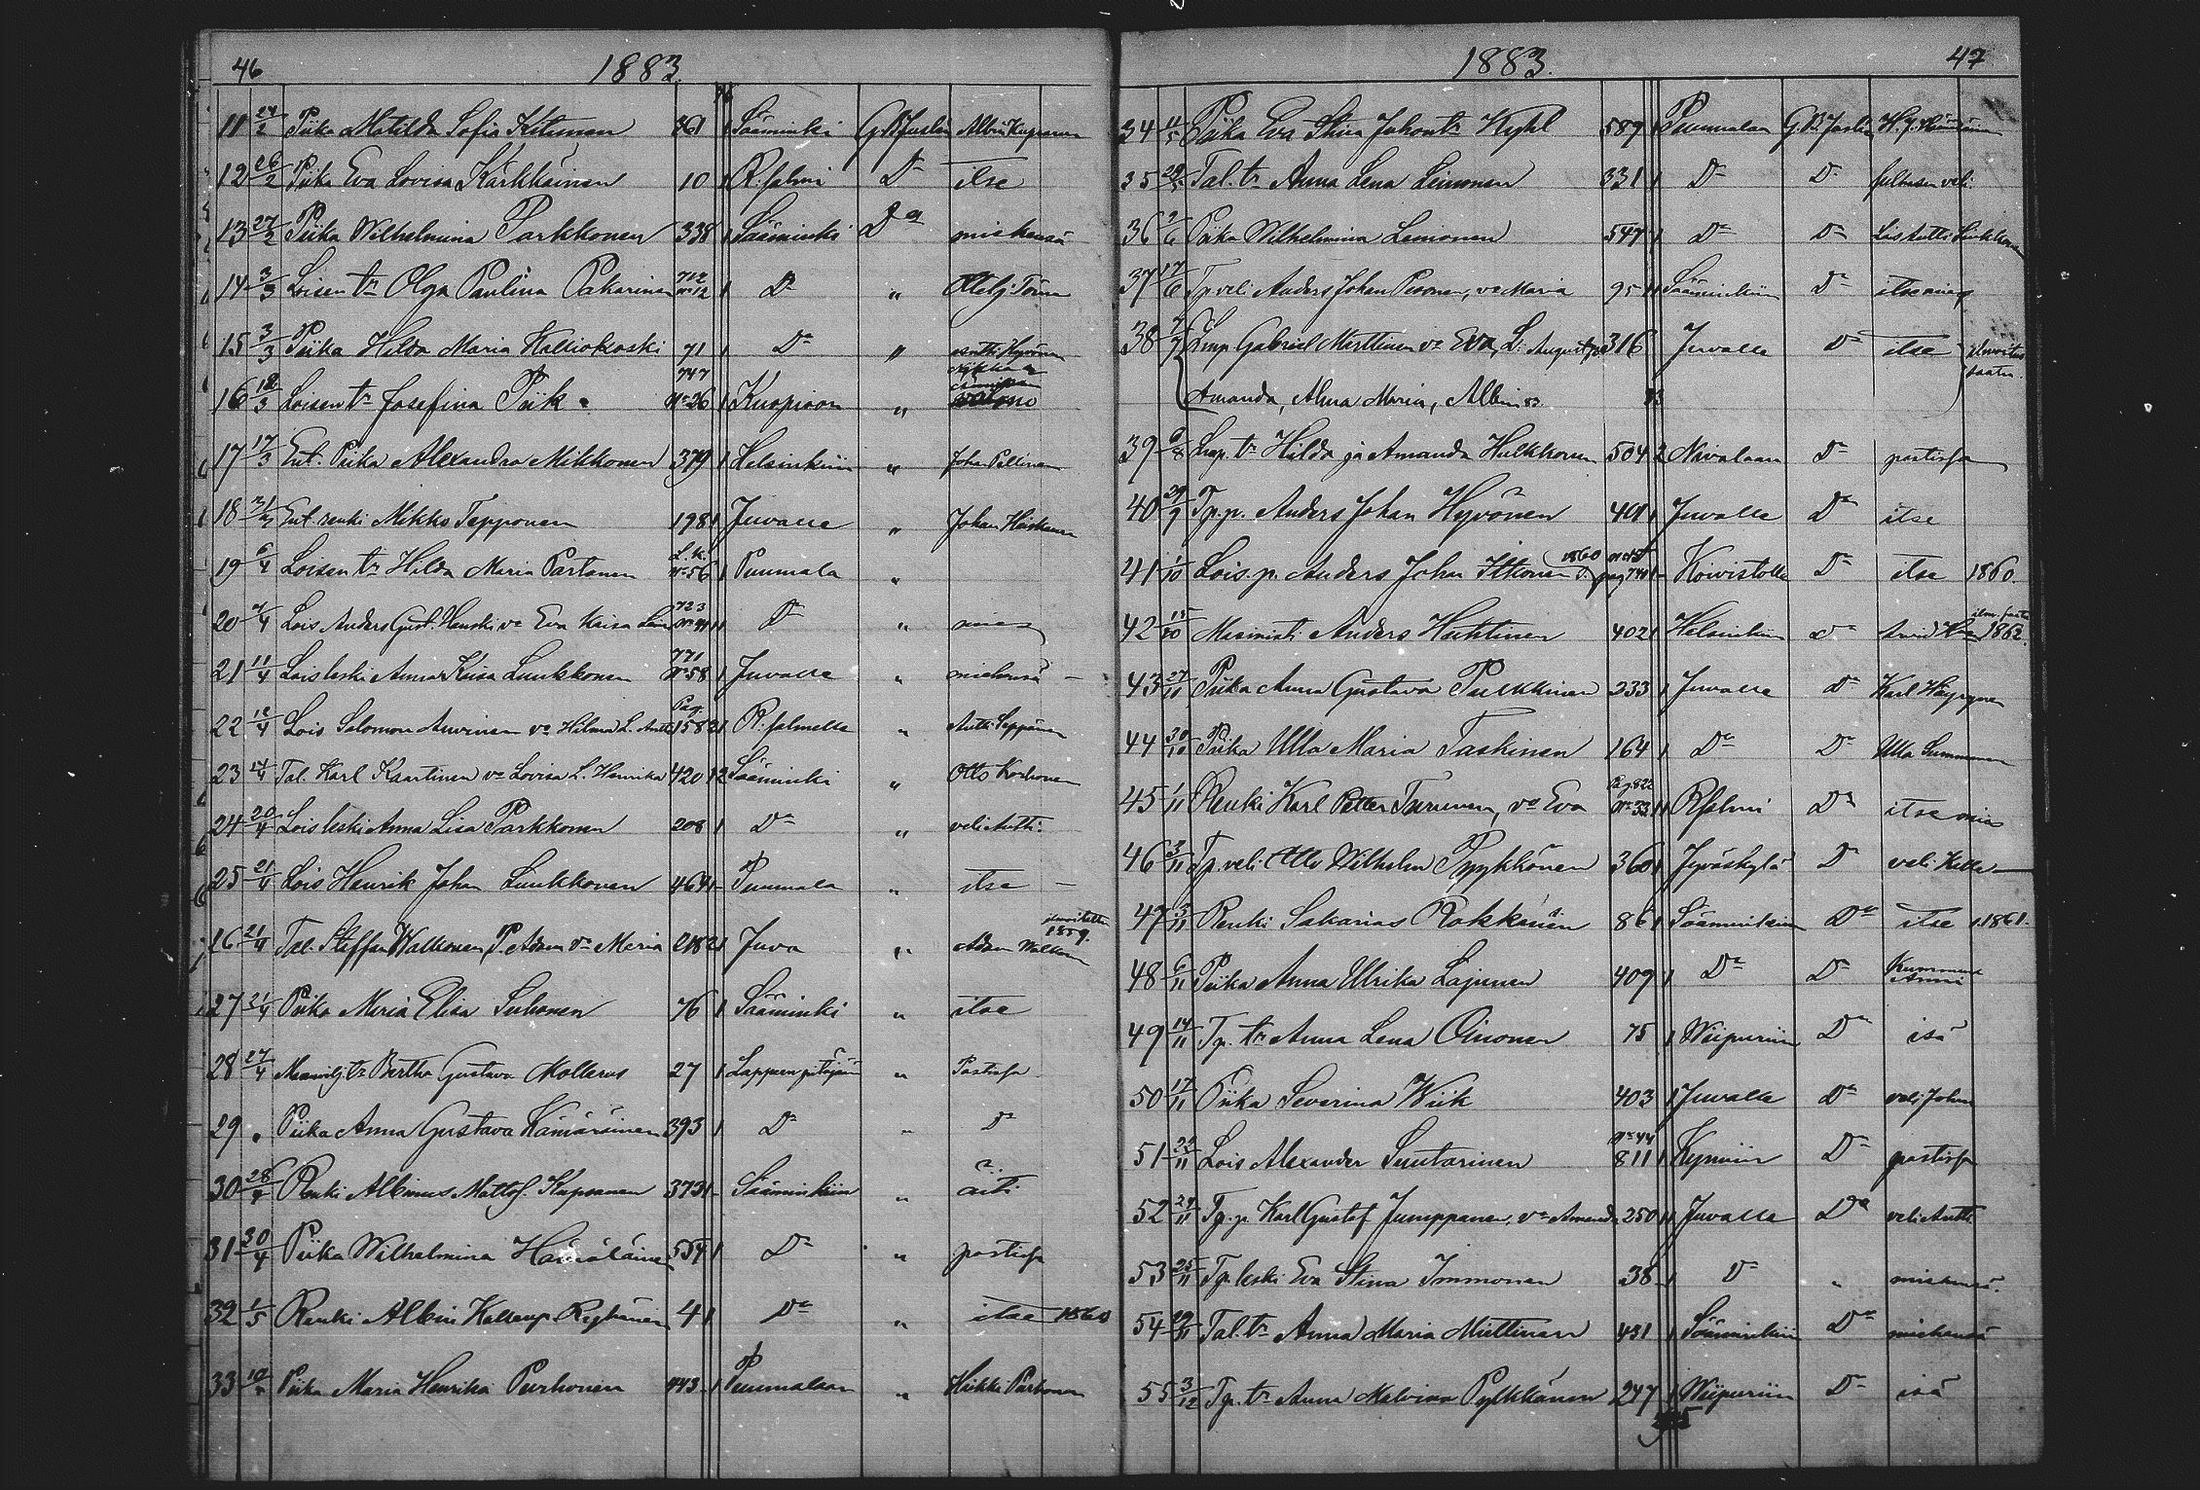 46
1883.
11 24/2 Piika Matilda Sofia Kitunen 361 1 Sääminki G.B. Juslen Albin Kuparinen
12 26/2 Piika Eva Lovisa Kärkkäinen 10 1 R:salmi Do itse
13 27/2 Piika Wilhelmina Parkkonen 338 1 Sääminki Do miehensä
14 3/3 Loisen tr Olga Paulina Pakarinen 712 No 12 1 Do "
15 3/3 Piika Hilda Maria Kalliokoski 71 1 Do " Antti Hyvönen
16 12/3 Loisen tr Josefina Piik 747 No 26 1 Kuopioon "
17 17/3 Ent. Piika Alexandra Mikkonen 379 1 Helsinkiin " Johan Pellinen
18 Ent renki Mikko Tepponen 198 1 Juvalle " Johan
19 6/4 Loisen tr Hilda Maria Partanen L.k. No 56 1 Puumala "
20 7/4 Lois Anders Gust. Hauski vo Eva Kaisa 723 11 Do " mies
21 11/4 Lois leski Anna Kaisa Luukkonen 771 No 58 1 Juvalle " miehensä –
22 12/4 Lois Salomon Auvinen vo Hilma L. Antti Pag. 158 21 R:salmelle " Antti Seppänen
23 17/4 Tal. Karl Kaartinen vo Lovisa L. Henrika 420 12 Sääminki " Otto Korhonen
24 20/4 Lois leski Anna Lisa Parkkonen 208 1 Do " veli Antti
25 21/4 Lois Henrik Johan Luukkonen 464 1 – Puumala " itse –
26 21/4 Tal. Steffan Walkonen P. Adam vo Maria 218 21 Juva " Adam Walkonen 1859.
27 21/4 Piika Maria Elisa Suhonen 76 1 Sääminki " itse
28 27/4 tr Bertha Gustava Mollerus 27 1 Lappeen pitäjään " Pastissa
29 " Piika Anna Gustava Kämäräinen 393 1 Do " Do
30 28/4 Renki Albinus Mattsf. Kuparinen 373 1 – Sääminkiin " äiti
31 30/4 Piika Wilhelmina Hämäläinen 554 1 Do " pastissa
32 1/5 Renki Albin 4 1 Do " itse 1860
33 10/" Piika Maria Henrika Purhonen 443 1 Puumalaan " Heikki Purhonen
47
1883.
34 11/5 Piika Eva Stina Juhontr Kyhl 589 1 Puumalaan G.B. Juslin
35 Tal. tr Anna Lena Leinonen 331 1 Do Do veli
36 2/6 Piika Wilhelmina Leinonen 547 1 Do Do Lois Antti Luukkonen
37 17/6 Tp veli Anders Johan Pesonen, vo Maria 95 11 Sääminkiin Do itse mies
38 7/7 Lmp Gabriel Marttinen vo Eva, L: August 316 Juvalle Do itse
Amanda, Alma Maria, Albin 83
39 9/8 Lmp. tr Hilda ja Amanda Hulkkonen 504 2 Nivalaan Do pastissa
40 29/9 Tp. p. Anders Johan Hyvönen 401 1 Juvalle Do itse
41 1/10 Lois. p. Anders Johan Itkonen 1860 pag 740 1 – Koivistolle Do itse 1860.
42 15/10 Masinisti Anders Huhtinen 402 1 Helsinkiin Do 1862.
43 27/10 Piika Anna Gustava Pulkkinen 233 1 Juvalle Do Karl Häyrynen
44 30/10 Piika Ulla Maria Taskinen 164 1 Do Do Ulla Summanen
45 1/11 Renki Karl Petter Turunen, vo Eva Pag 822 No 33 11 R:salmi Do itse mies
46 3/11 Tp. veli Otto Wilhelm Pyykkönen 360 1 Jyväskylä Do veli Kalle –
47 5/11 Renki Sakarias Rokkanen 86 1 Sääminkiin Do itse 1861.
48 6/11 Piika Anna Ulrika Lajunen 409 1 Do Do Kumminsa Anni
49 14/11 Tp. tr Anna Lena Oinonen 75 1 Wiipuriin Do isä
50 17/11 Piika Severina Wiik 403 1 Juvalle Do veli Johan
51 23/11 Lois Alexander Suutarinen No 44 811 1 Kymiin Do pastissa
52 24/11 Tp. p. Karl Gustaf Jumppanen, vo Amanda 250 11 Juvalle Do veli Antti
53 25/11 Tp. leski Eva Stina Immonen 38 1 Do " miehensä
54 29/11 Tal. tr Anna Maria Miettinen 431 1 Sääminkiin Do miehensä
55 3/12 Tp. tr Anna Malviina Pylkkänen 247 1 Wiipuriin Do isä